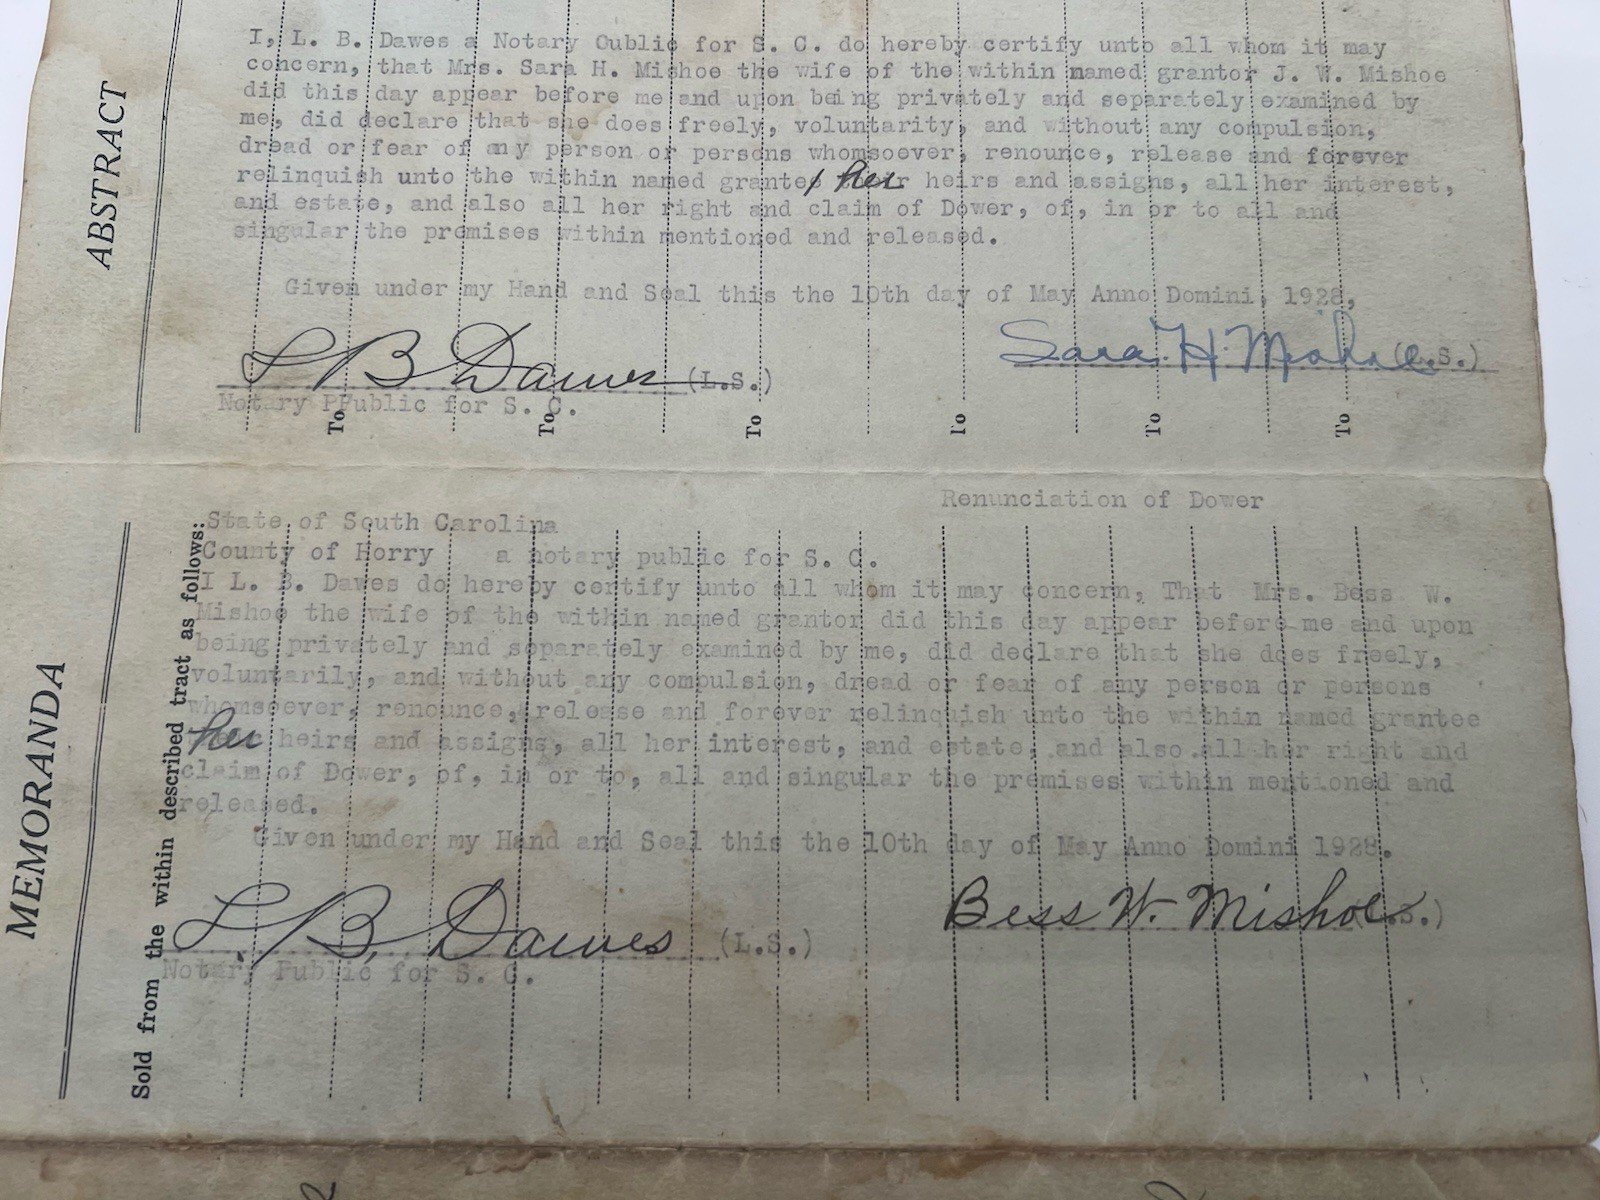 ABSTRACT
I, L. B. Dawes a Notary Oublic for S. C. do hereby certify unto all whom it may
concern, that Mrs. Sara H. Mishoe the wife of the within named grantor J. W. Mishoe
did this day appear before me and upon being privately and separately examined by
me, did declare that she does freely, voluntarity, and without any compulsion,
dread or fear of any person or persons whomsoever, renounce, release and forever
relinquish unto the within named grantee her heirs and assigns, all her interest,
and estate, and also all her right and claim of Dower, of, in or to all and
singular the premises within mentioned and released.
Given under my Hand and Seal this the 10th day of May Anno Domini, 1928,
L B Dawes (L.S.)
Sara H. Mishoe (L.S.)
Notary PPublic for S. C.
To To To To To To
Renunciation of Dower
State of South Carolina
County of Horry a notary public for S. C.
I L. B. Dawes do hereby certify unto all whom it may concern, That Mrs. Bess W.
Mishoe the wife of the within named grantor did this day appear before me and upon
being privately and separately examined by me, did declare that she does freely,
voluntarily, and without any compulsion, dread or fear of any person or persons
whomsoever, renounce, release and forever relinquish unto the within named grantee
her heirs and assigns, all her interest, and estate, and also all her right and
claim of Dower, of, in or to, all and singular the premises within mentioned and
released.
Given under my Hand and Seal this the 10th day of May Anno Domini 1928.
L. B. Dawes (L.S.)
Bess W. Mishoe (L.S.)
Notary Public for S. C.
MEMORANDA
Sold from the within described tract as follows: